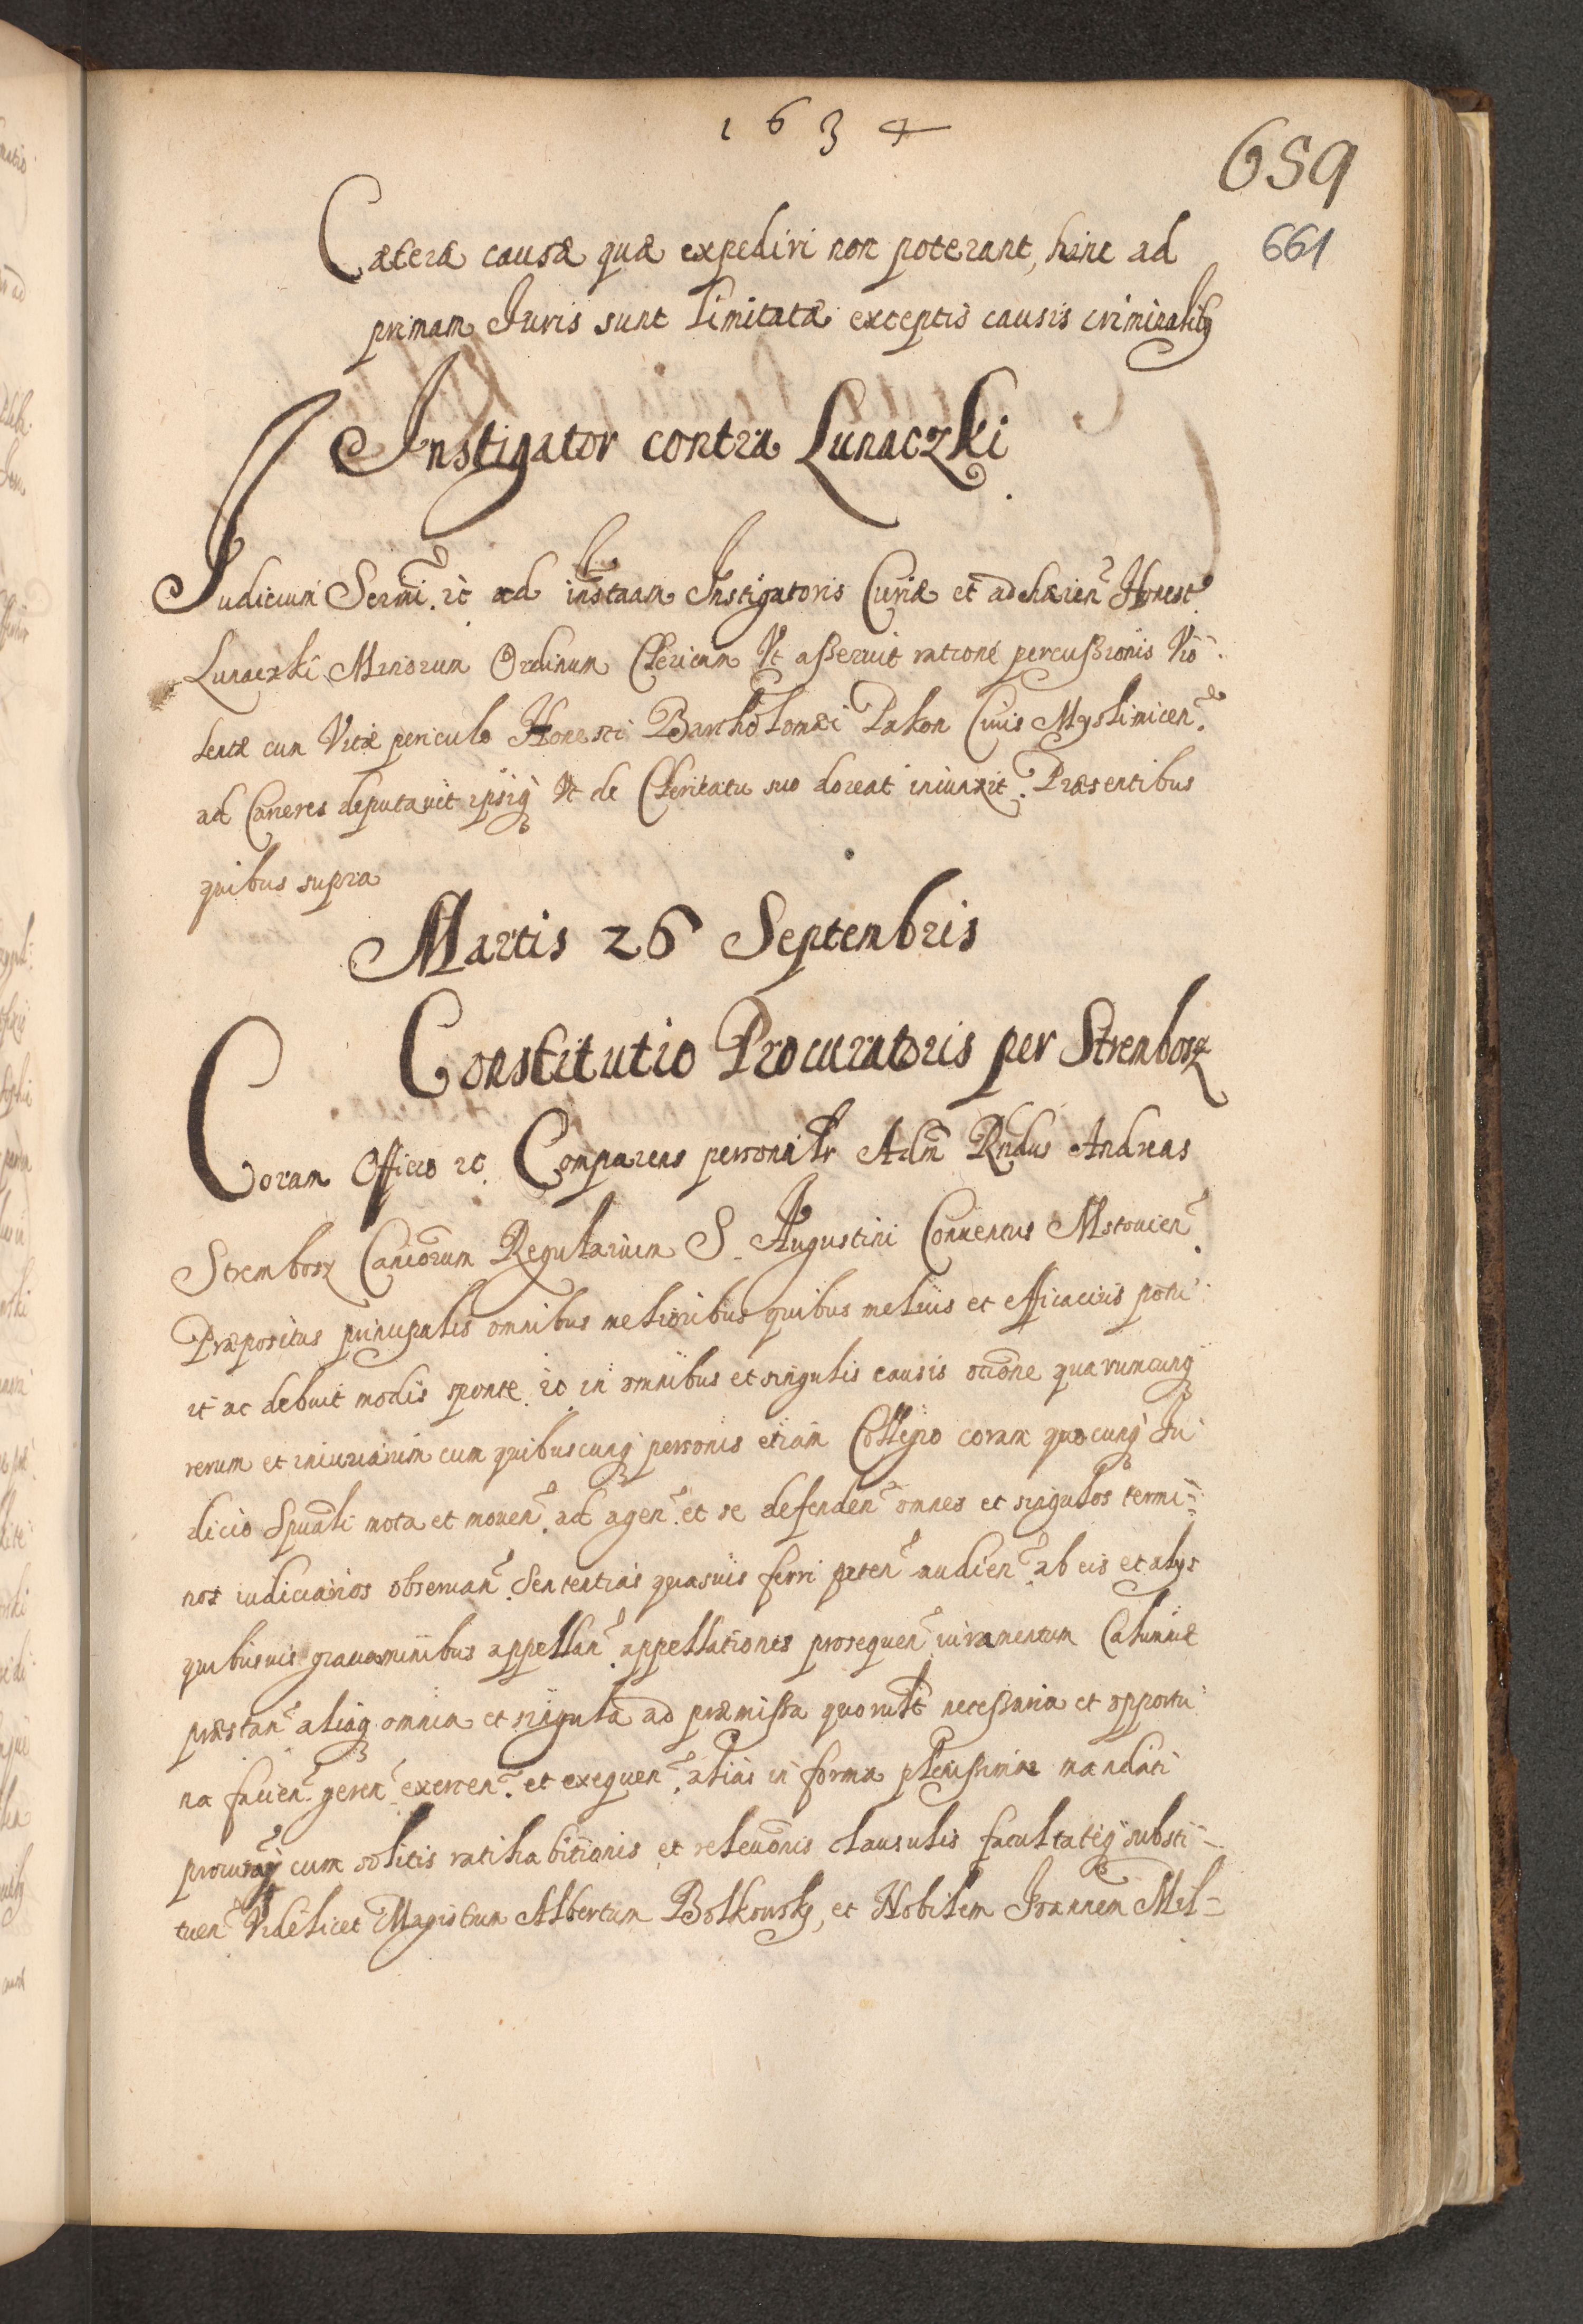 1634
659
661
Cæteræ causæ quæ expediri non poterant, hinc ad
primam Iuris sunt limitatæ exceptis causis criminalibȝ
Instigator contra Lunaczki
Iudicium Sermi. rc ad instaam Instigatoris Curiæ et adhæren Honest
Lunaczki Minorum Ordinum Clericum Vt asseruit rationé percussionis Vio
lentæ cum Vitæ periculo Honesti Bartholomæi Pakon Ciuis Myslimicen.
ad Carceres deputauit ipsiqȝ Vt de Clericatu suo doceat iniunxit. Præsentibus
quibus supra
Martis 26 Septembris
Constitutio Procuratoris per Strembosz
Coram Officio rc. Comparens personałr Adm̃ Rndus Andreas
Strembosz Canco͠rum Regularium S. Augustini Conuentus Mstouien.
Præpositus principalis omnibus melioribus quibus melius et efficacius potu
it ac debuit modis sponte rc in omnibus et singulis causis oc̃one quarumcunqȝ
rerum et iniuriarum cum quibuscunqȝ personis etiam Collegio coram quocunqȝ Iu
dicio Spuali mota et mouen. ad agen. et se defenden omnes et singulos termi=
nos iudiciarios obseruan. Sententias quasuis ferri peten audien. ab eis et alys
quibusuis grauaminibus appellan. appellationes prosequen iuramentum Calumniæ
præstan aliaqȝ omnia et singula ad præmissa necessaria et opportu
na facien. geren exercen. et exequen. alias in forma plenissimæ mandati
procurãy cum solitis ratihabitionis et releuõnis clausulis facultateqȝ substi=
tuen Videlicet Magistrum Albertum Bolkowsky, et Nobilem Ioannem Mil=